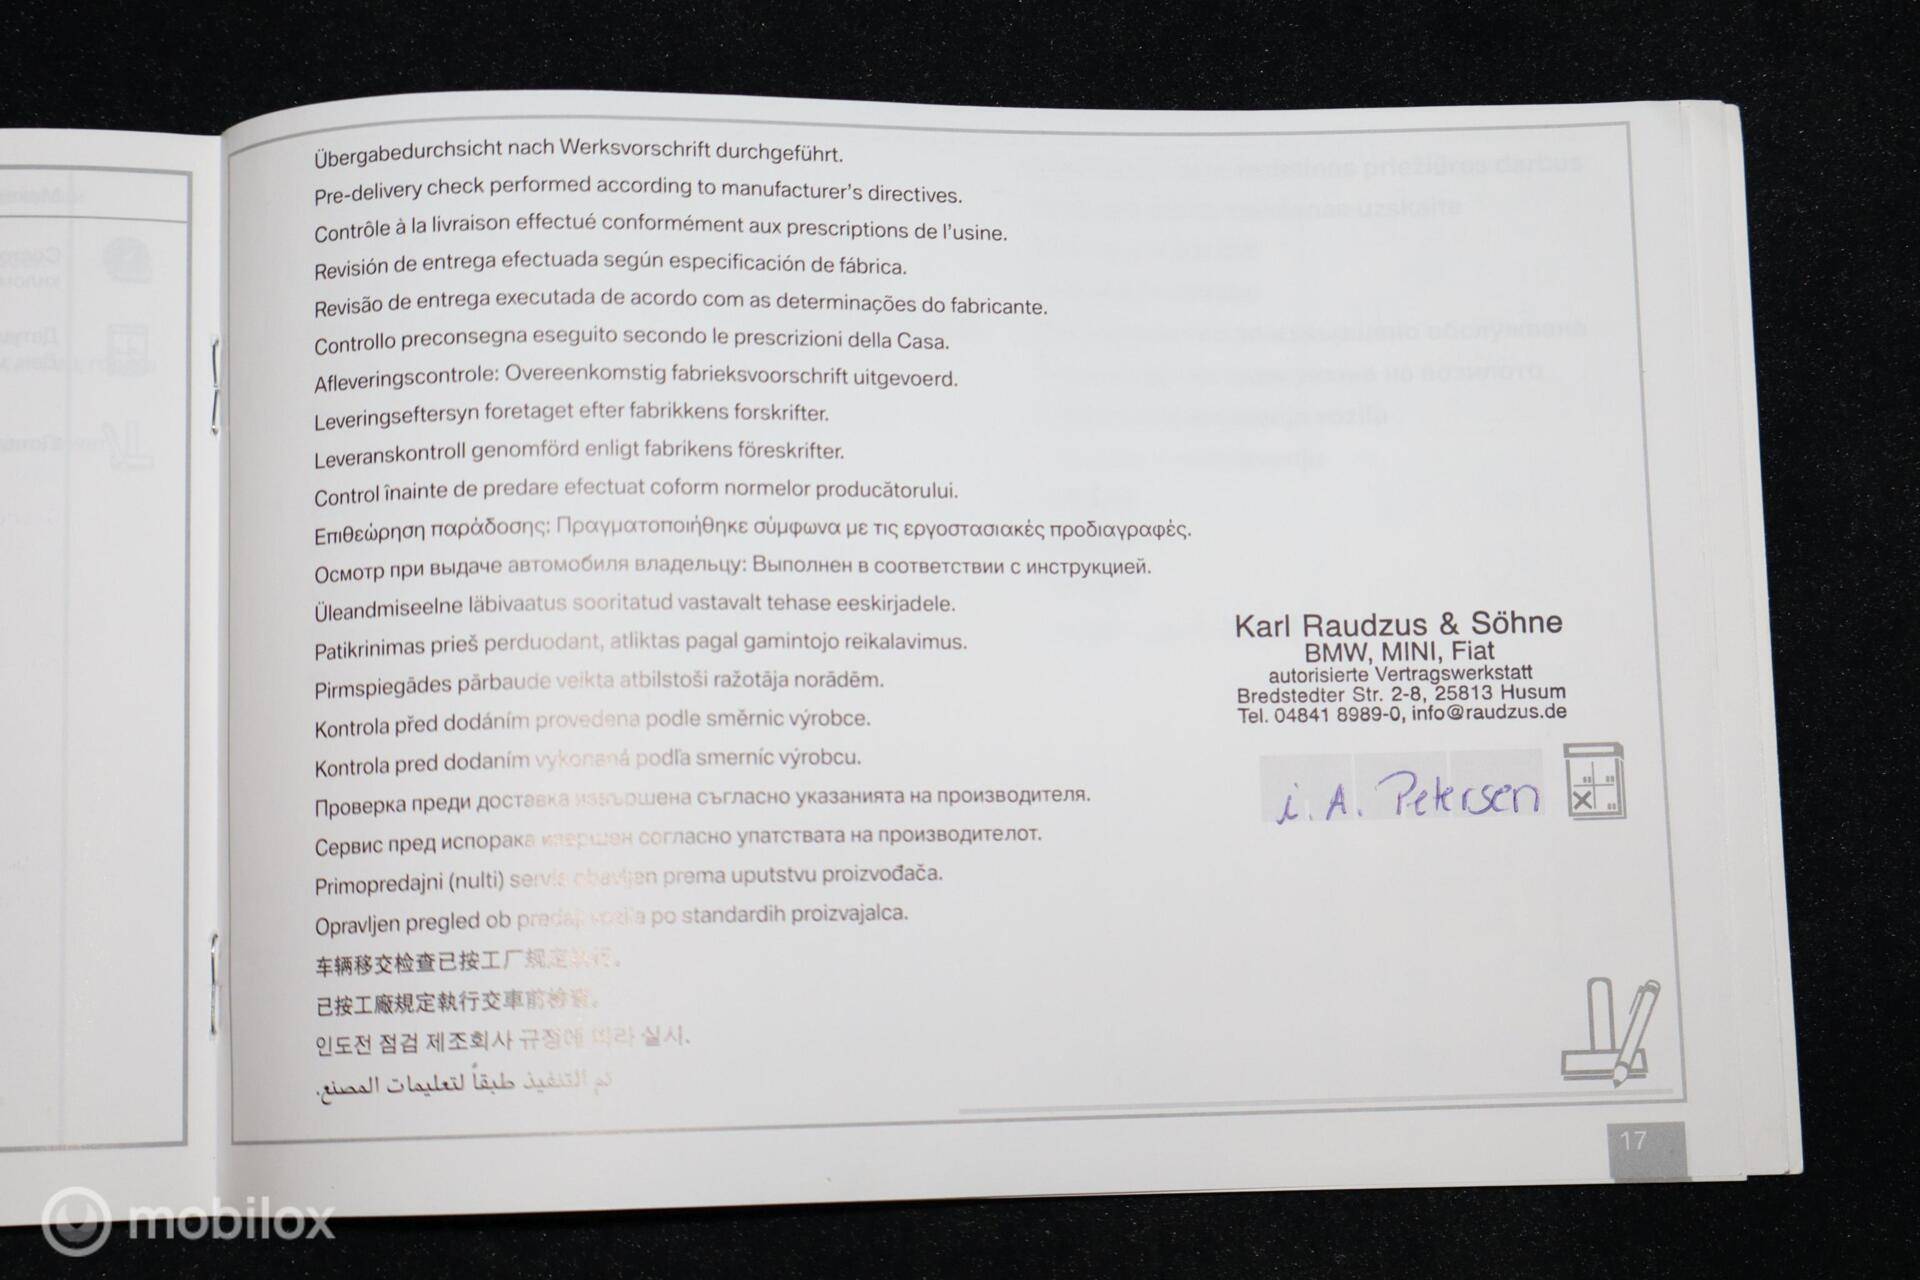 Übergabedurchsicht nach Werksvorschrift durchgeführt.
Pre-delivery check performed according to manufacturer's directives.
Contrôle à la livraison effectué conformément aux prescriptions de l'usine.
Revisión de entrega efectuada según especificación de fábrica.
Revisão de entrega executada de acordo com as determinações do fabricante.
Controllo preconsegna eseguito secondo le prescrizioni della Casa.
Afleveringscontrole: Overeenkomstig fabrieksvoorschrift uitgevoerd.
Leveringseftersyn foretaget efter fabrikkens forskrifter.
Leveranskontroll genomförd enligt fabrikens föreskrifter.
Control înainte de predare efectuat coform normelor producătorului.
Επιθεώρηση παράδοσης: Πραγματοποιήθηκε σύμφωνα με τις εργοστασιακές προδιαγραφές.
Осмотр при выдаче автомобиля владельцу: Выполнен в соответствии с инструкцией.
Üleandmiseelne läbivaatus sooritatud vastavalt tehase eeskirjadele.
Patikrinimas prieš perduodant, atliktas pagal gamintojo reikalavimus.
Pirmspiegādes pārbaude veikta atbilstoši ražotāja norādēm.
Kontrola před dodáním provedena podle směrnic výrobce.
Kontrola pred dodaním vykonaná podľa smerníc výrobcu.
Проверка преди доставка извършена съгласно указанията на производителя.
Сервис пред испорака извршен согласно упатствата на производителот.
Primopredajni (nulti) servis obavljen prema uputstvu proizvođača.
Opravljen pregled ob predaji vozila po standardih proizvajalca.
车辆移交检查已按工厂规定执行。
已按工廠規定執行交車前檢查。
인도전 점검 제조회사 규정에 따라 실시.
تم التنفيذ طبقاً لتعليمات المصنع.
Karl Raudzus & Söhne
BMW, MINI, Fiat
autorisierte Vertragswerkstatt
Bredstedter Str. 2-8, 25813 Husum
Tel. 04841 8989-0, info@raudzus.de
i. A. Petersen
17
mobilox